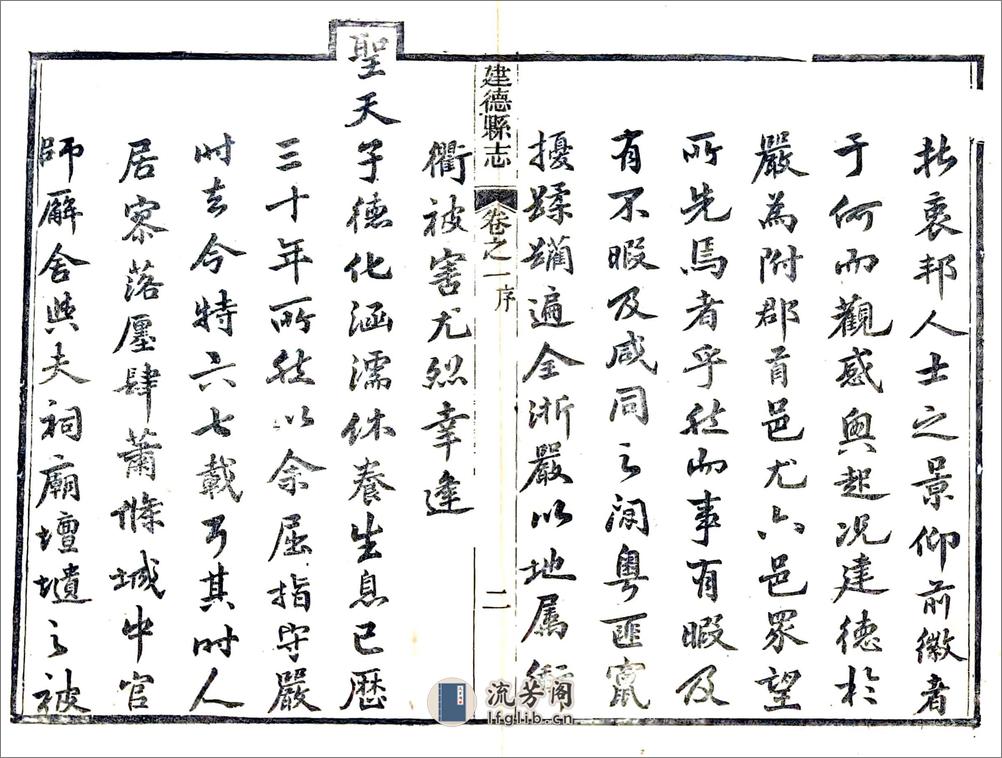 折衷邦人士之景仰前徽者
于何而觀感興起况建德於
嚴為附郡首邑尤六邑眾望
所先焉者乎然而事有暇及
有不暇及咸同之間粵匪竄
擾蹂躪遍全浙嚴以地属衝
建德縣志 卷之一序 二
衢被害尤烈幸逢
聖天子德化涵濡休養生息已歷
三十年所然以余屈指守嚴
时去今特六七載乃其时人
居寥落廛肆蕭條城中官
師廨舍與夫祠廟壇壝之被
流芳阁
lfglib.cn